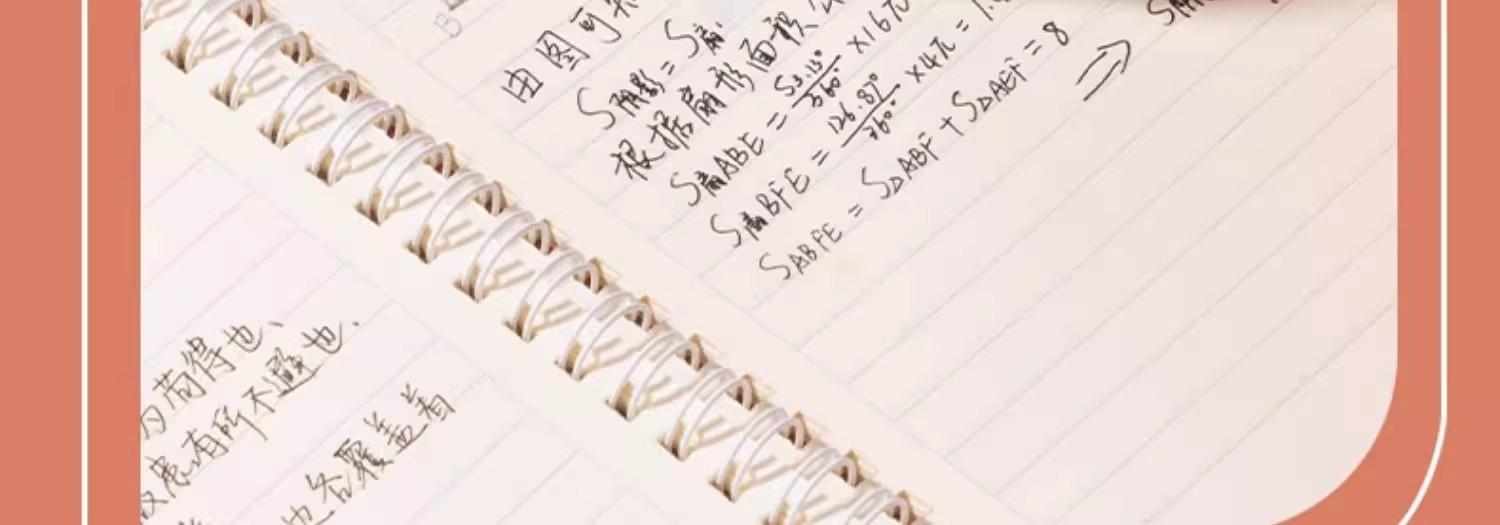 B
由图可
S阴影 = S扇
根据扇形面积
S扇ABE = 53.13°/360° ×16π
S扇BFE = 126.87°/360° ×4π = 1.
SABFE = S△ABF + S△AEF = 8
⇒
为苟得也、
故患有所不避也.
也各覆盖着